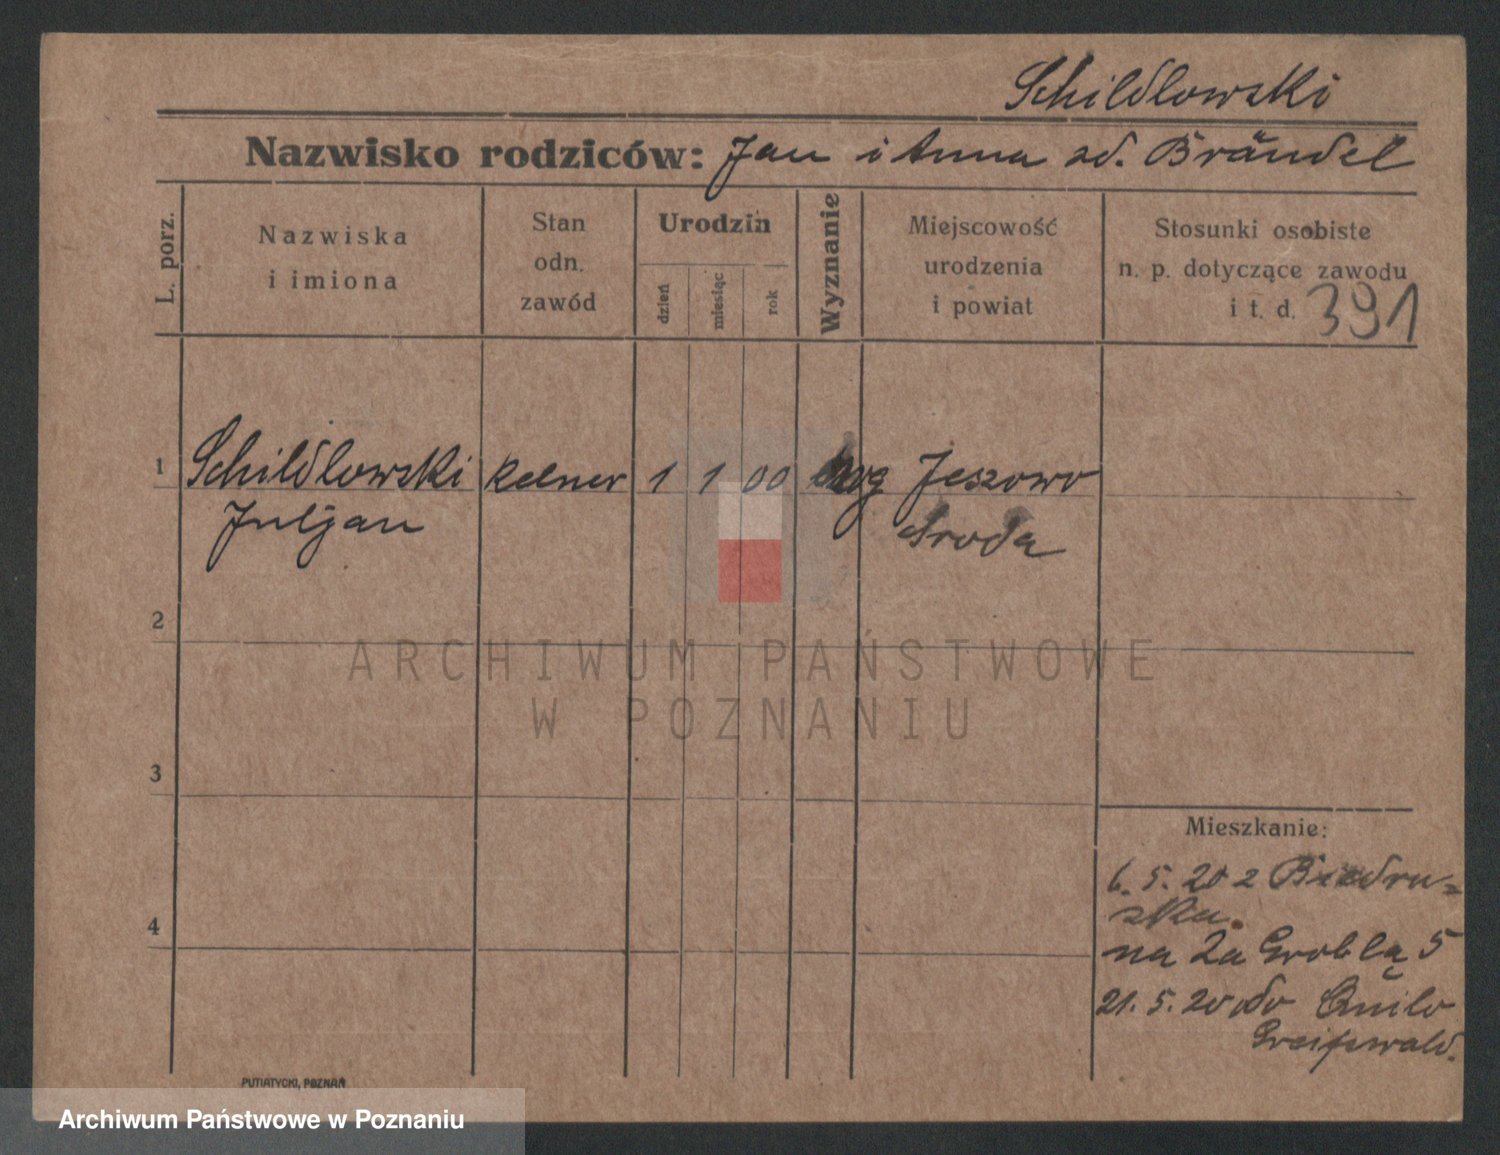 Schildlowski
Nazwisko rodziców: Jan i Anna zd. Brändel
L. porz.
Nazwiska
i imiona
Stan
odn.
zawód
Urodzin
dzień
miesiąc
rok
Wyznanie
Miejscowość
urodzenia
i powiat
Stosunki osobiste
n. p. dotyczące zawodu
i t. d. 391
1 Schildlowski kelner 1 1 00 Jeszowo
Juljan Środa
2
ARCHIWUM PAŃSTWOWE
W POZNANIU
3
Mieszkanie:
6. 5. 20 z Biedru-
ska.
4
na Za Groblą 5
21. 5. 20 do
Greifswald.
PUTIATYCKI, POZNAŃ
Archiwum Państwowe w Poznaniu